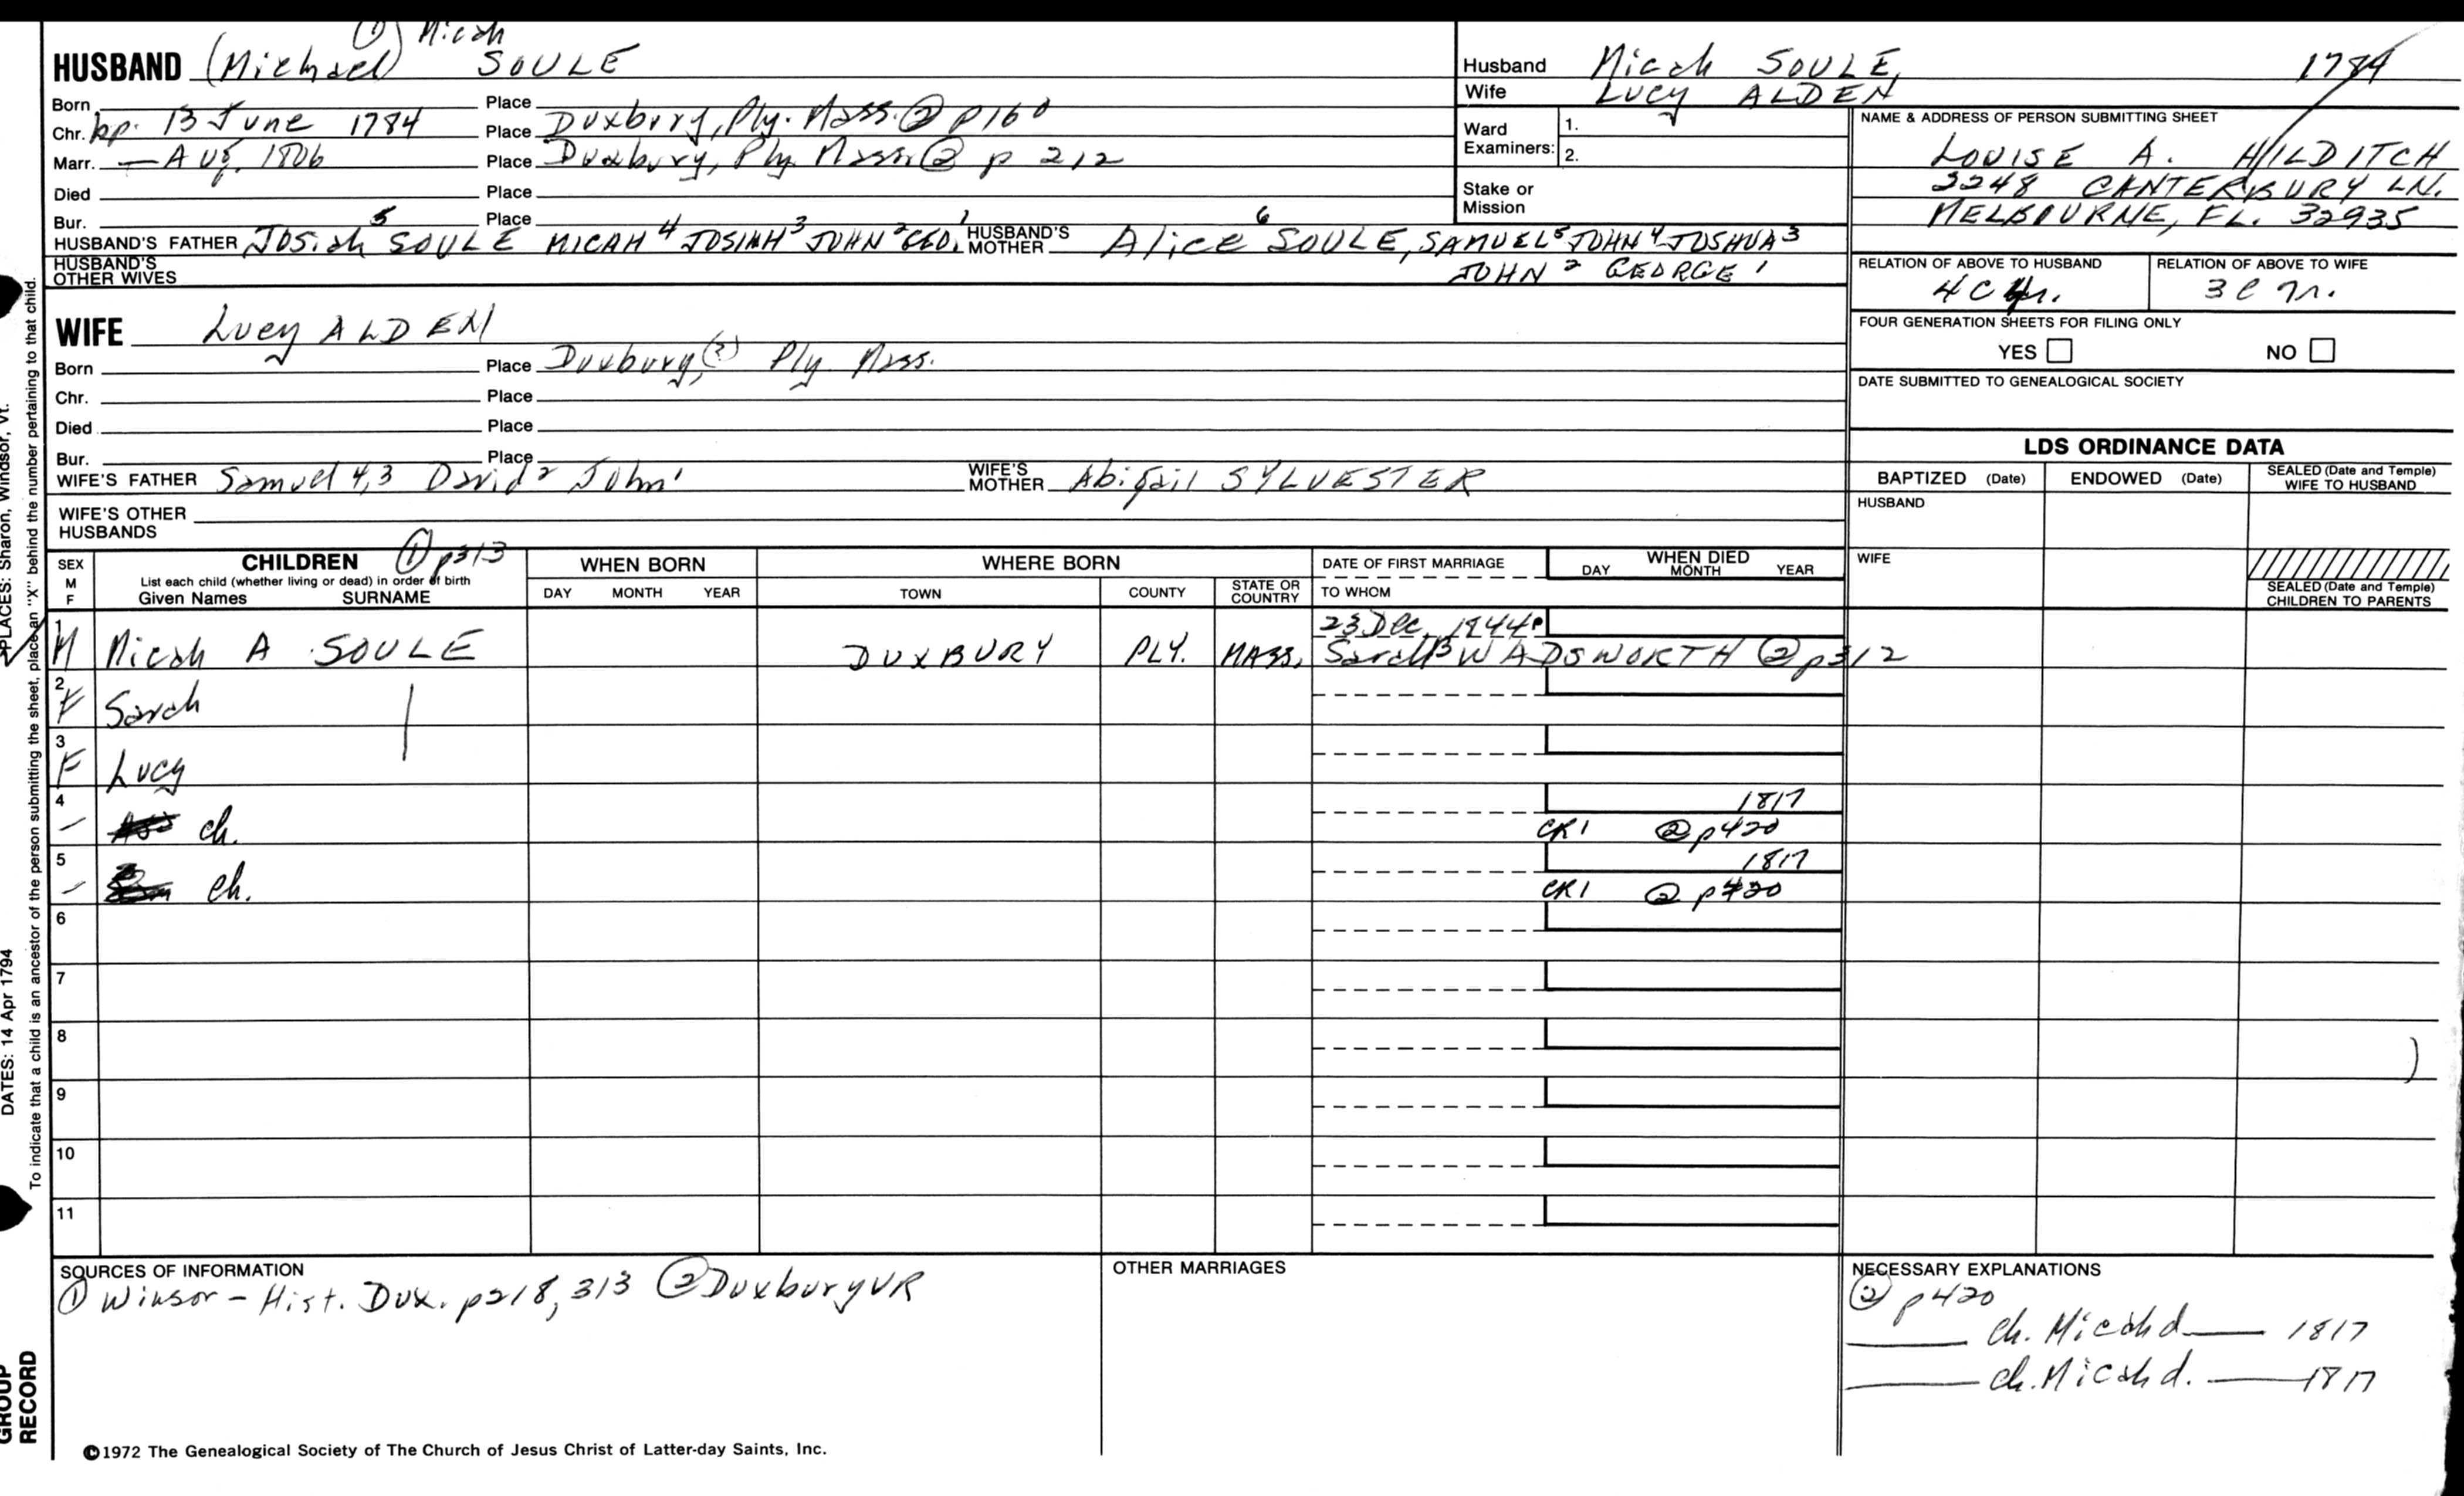 ① Micah
HUSBAND (Michael) SOULE
Born Place
Chr. bp. 13 June 1784 Place Duxbury, Ply. Mass. ② p160
Marr. — Aug, 1806 Place Duxbury, Ply. Mass. ② p 212
Died Place
Bur. Place
HUSBAND'S FATHER Josiah 5 SOULE MICAH 4 JOSIAH 3 JOHN 2 GEO. 1 HUSBAND'S MOTHER Alice 6 SOULE, SAMUEL 5 JOHN 4 JOSHUA 3
JOHN 2 GEORGE 1
HUSBAND'S OTHER WIVES
Husband Micah SOULE, 1784
Wife LUCY ALDEN
Ward Examiners: 1.
2.
Stake or Mission
NAME & ADDRESS OF PERSON SUBMITTING SHEET
LOUISE A. HILDITCH
3248 CANTERBURY LN.
MELBOURNE, FL. 32935
RELATION OF ABOVE TO HUSBAND RELATION OF ABOVE TO WIFE
FOUR GENERATION SHEETS FOR FILING ONLY
YES NO
DATE SUBMITTED TO GENEALOGICAL SOCIETY
WIFE Lucy ALDEN
Born Place Duxbury, (?) Ply. Mass.
Chr. Place
Died Place
Bur. Place
WIFE'S FATHER Samuel 4,3 David 2 John 1 WIFE'S MOTHER Abigail SYLVESTER
WIFE'S OTHER HUSBANDS
LDS ORDINANCE DATA
BAPTIZED (Date) ENDOWED (Date) SEALED (Date and Temple) WIFE TO HUSBAND
HUSBAND
WIFE
SEALED (Date and Temple) CHILDREN TO PARENTS
SEX M F
CHILDREN ① p313
List each child (whether living or dead) in order of birth
Given Names SURNAME
WHEN BORN
DAY MONTH YEAR
WHERE BORN
TOWN COUNTY STATE OR COUNTRY
DATE OF FIRST MARRIAGE
TO WHOM
WHEN DIED
DAY MONTH YEAR
23 Dec. 1844
1 M Micah A SOULE DUXBURY PLY. MASS. Sarah B WADSWORTH ② p312
2 F Sarah
3 F Lucy
4 1817
– ch. CR1 ② p420
5 1817
– ch. CR1 ② p420
6
7
8
9
10
11
SOURCES OF INFORMATION
① Winsor – Hist. Dux. p218, 313 ② Duxbury VR
OTHER MARRIAGES
NECESSARY EXPLANATIONS
② p420
____ ch. Micah d. ____ 1817
____ ch. Micah d. ____ 1817
©1972 The Genealogical Society of The Church of Jesus Christ of Latter-day Saints, Inc.
PLACES: Sharon, Windsor, Vt.
DATES: 14 Apr 1794
To indicate that a child is an ancestor of the person submitting the sheet, place an "X" behind the number pertaining to that child.
GROUP
RECORD